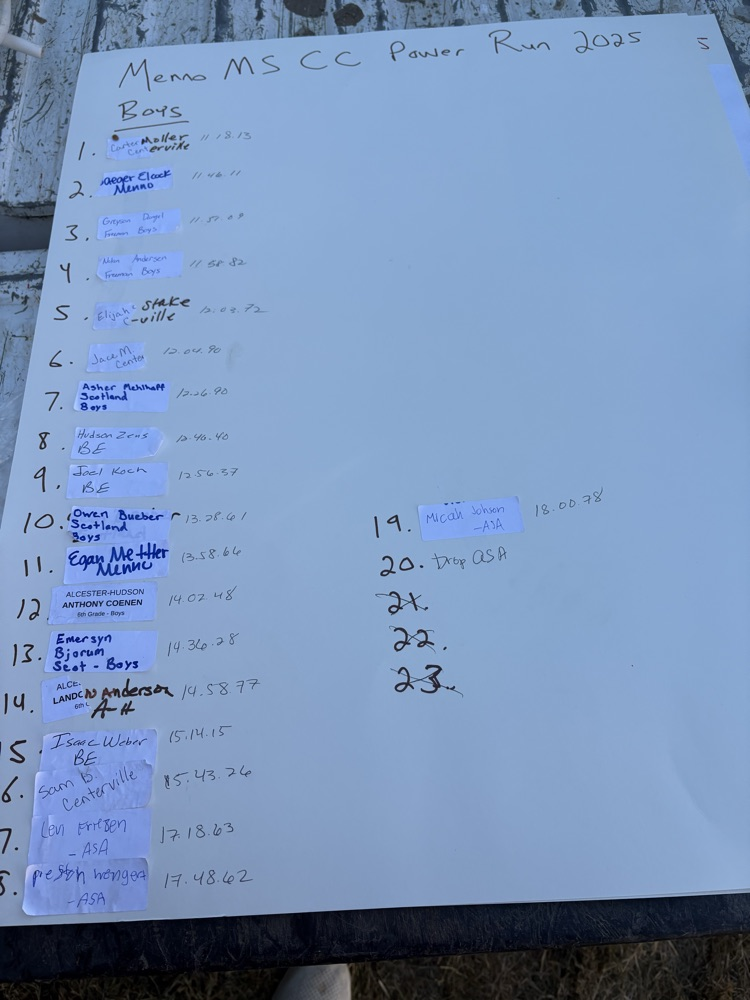 Menno MS CC Power Run 2025
5
Boys
1. Carter Moller 11.18.13
Centerville
2. Jaeger Elcock 11.46.11
Menno
3. Greyson 11.51.09
Freeman Boys
4. Nolan Andersen 11.58.82
Freeman Boys
5. Elijah Stake 12.03.72
C-ville
6. Jace M. 12.04.90
Center
7. Asher Mehlhaff 12.26.90
Scotland
Boys
8. Hudson Zeus 12.46.40
BE
9. Joel Koch 12.56.37
BE
10. Owen Bueber 13.28.61
Scotland
Boys
11. Egan Mettler 13.58.66
Menno
12. ALCESTER-HUDSON 14.02.48
ANTHONY COENEN
6th Grade - Boys
13. Emersyn 14.36.28
Bjorum
Scot - Boys
14. ALCE. 14.58.77
LANDON Anderson
6th A-H
5. Isaac Weber 15.14.15
BE
6. Sam B 15.43.26
Centerville
7. Levi Friesen 17.18.63
-ASA
8. Preston Wenger 17.48.62
-ASA
19. Micah Johson 18.00.78
-ASA
20. Drop ASA
21.
22.
23.